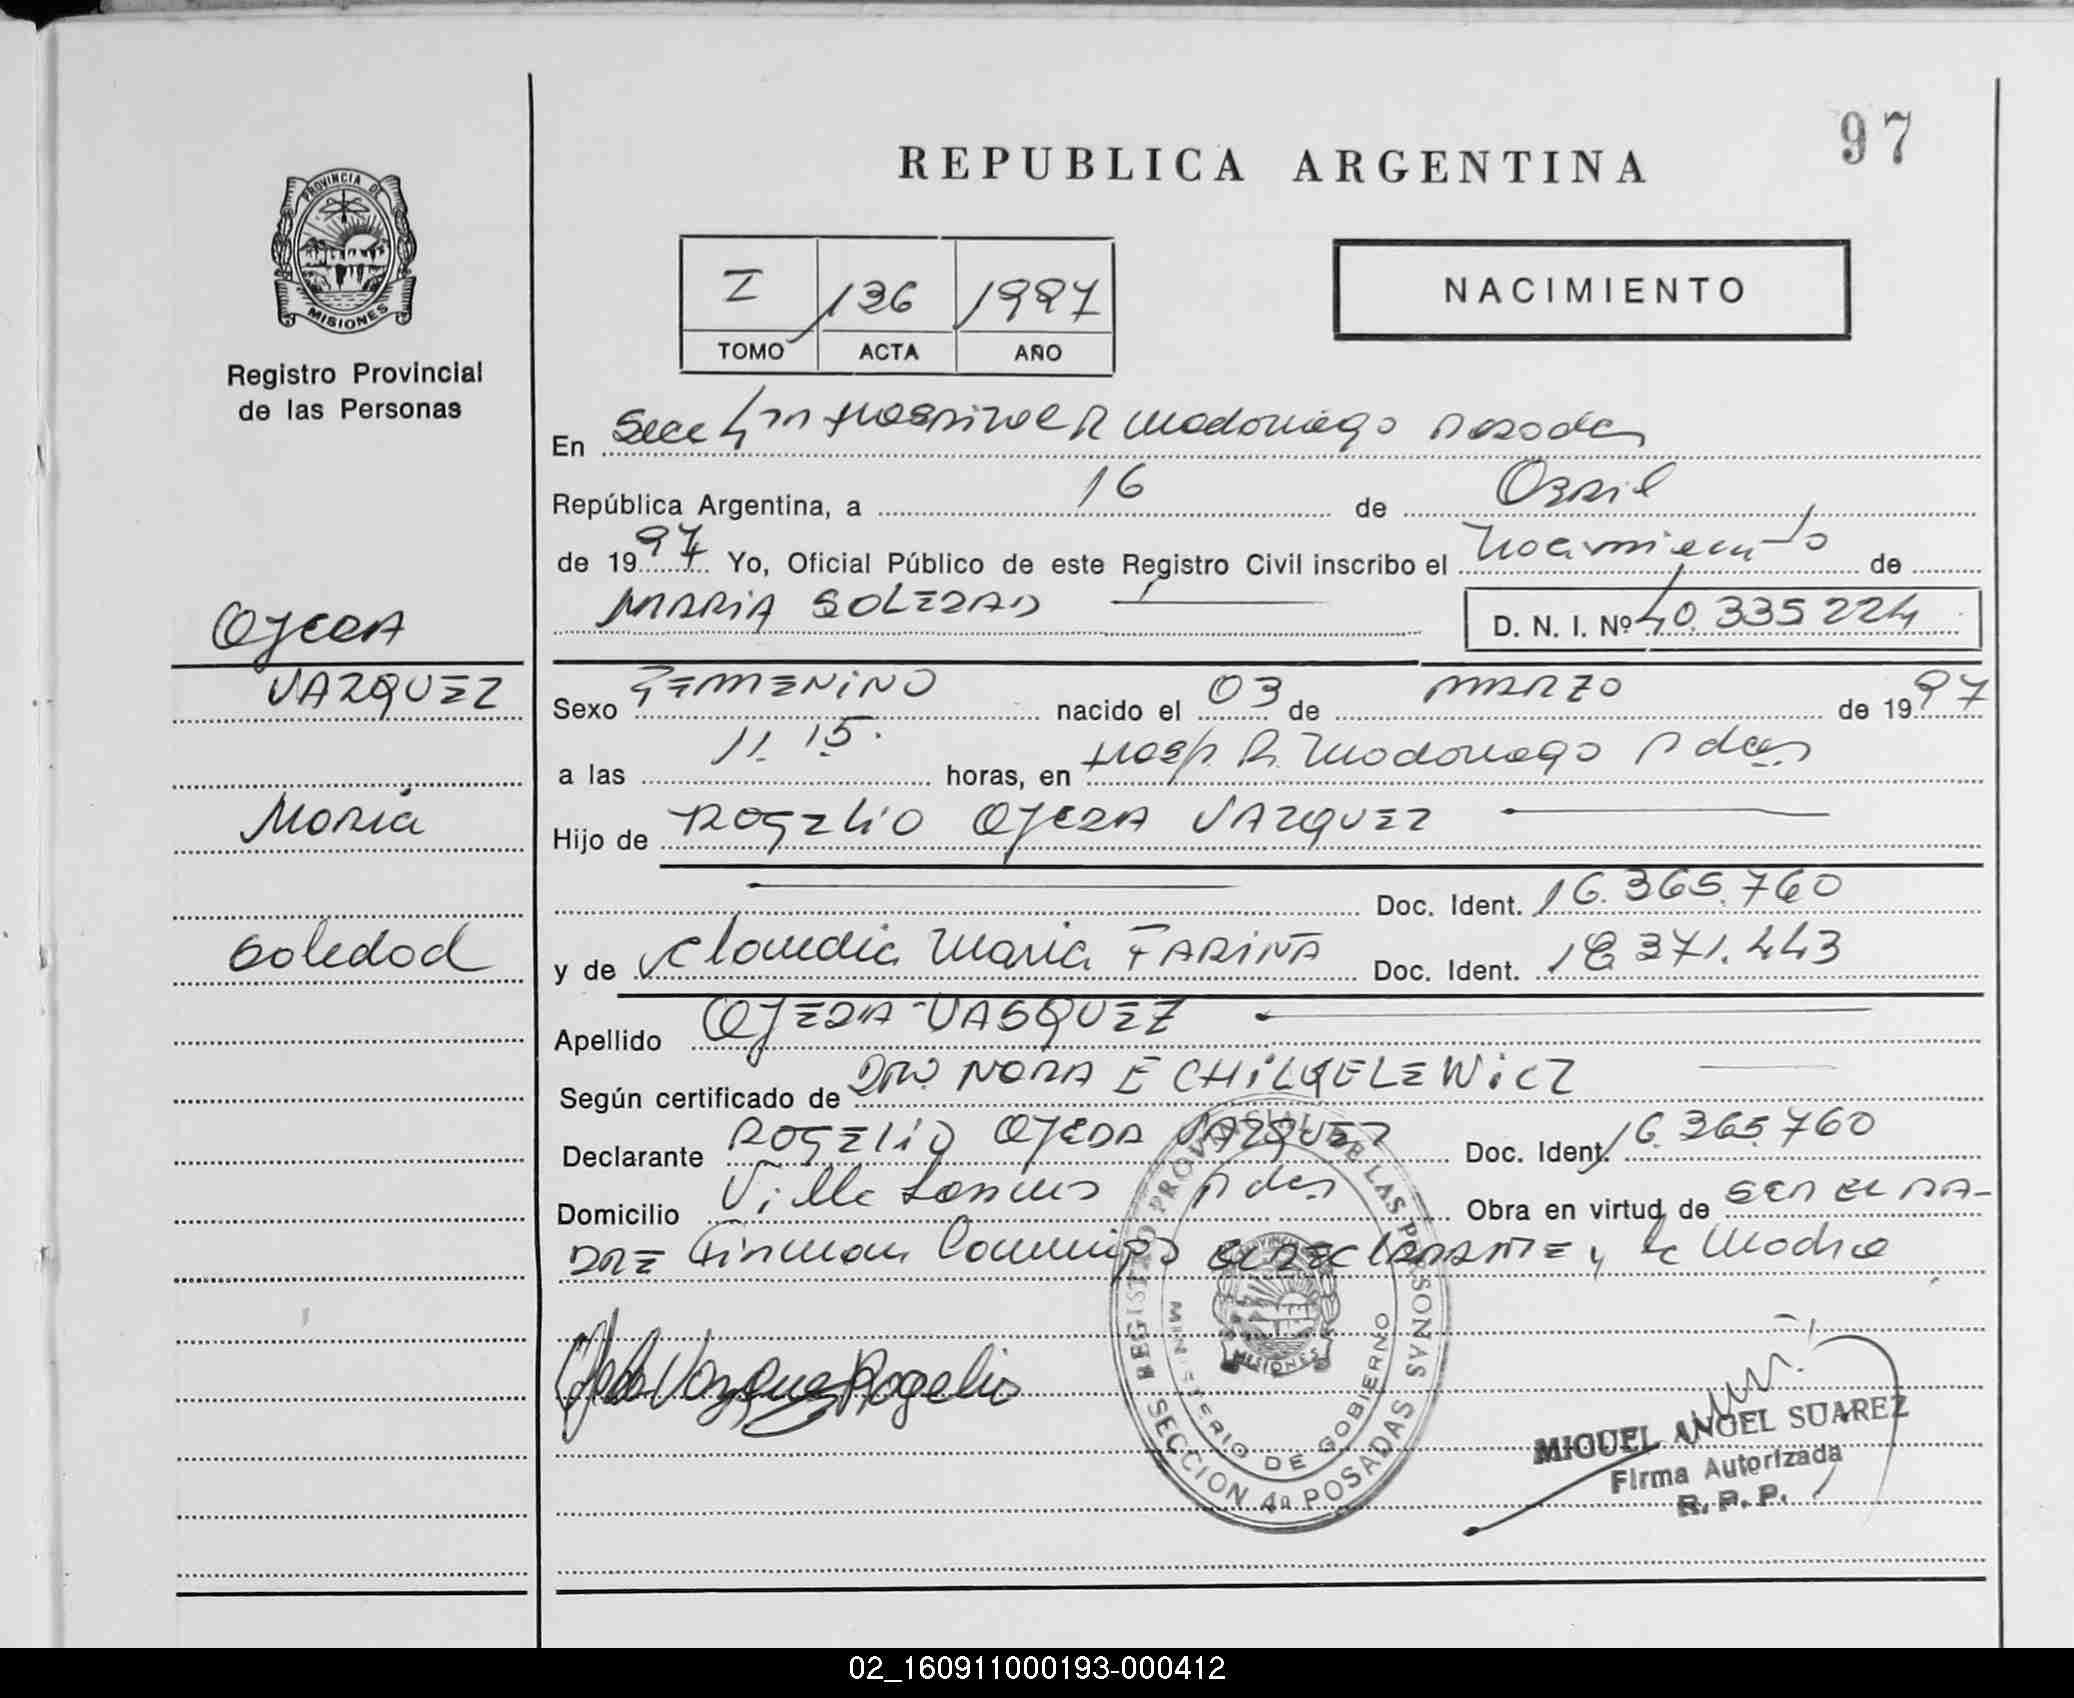 97
REPUBLICA ARGENTINA
PROVINCIA DE
MISIONES
Registro Provincial
de las Personas
I 136 1997
TOMO ACTA AÑO
NACIMIENTO
En Secc 4ta Hospital R Madariaga Posadas
República Argentina, a 16 de Abril
de 1997 Yo, Oficial Público de este Registro Civil inscribo el Nacimiento de
MARIA SOLEDAD D. N. I. Nº 40.335224
OJEDA
VAZQUEZ
Maria
Soledad
Sexo FEMENINO nacido el 03 de MARZO de 1997
a las 11.15. horas, en Hosp. R. Madariaga Pdas
Hijo de ROGELIO OJEDA VAZQUEZ
Doc. Ident. 16.365.760
y de Claudia Maria FARIÑA Doc. Ident. 18.371.443
Apellido OJEDA-VASQUEZ
Según certificado de DRA. NORA E
Declarante ROGELIO OJEDA VAZQUEZ Doc. Ident. 16.365.760
Domicilio Villa Pdas Obra en virtud de SER EL PA-
DRE Firman Conmigo EL DECLARANTE y la Madre
Ojeda Vazquez Rogelio
REGISTRO PROVINCIAL DE LAS PERSONAS
MINISTERIO DE GOBIERNO
MISIONES
SECCION 4a POSADAS
MIGUEL ANGEL SUAREZ
Firma Autorizada
R. P. P.
02_160911000193-000412